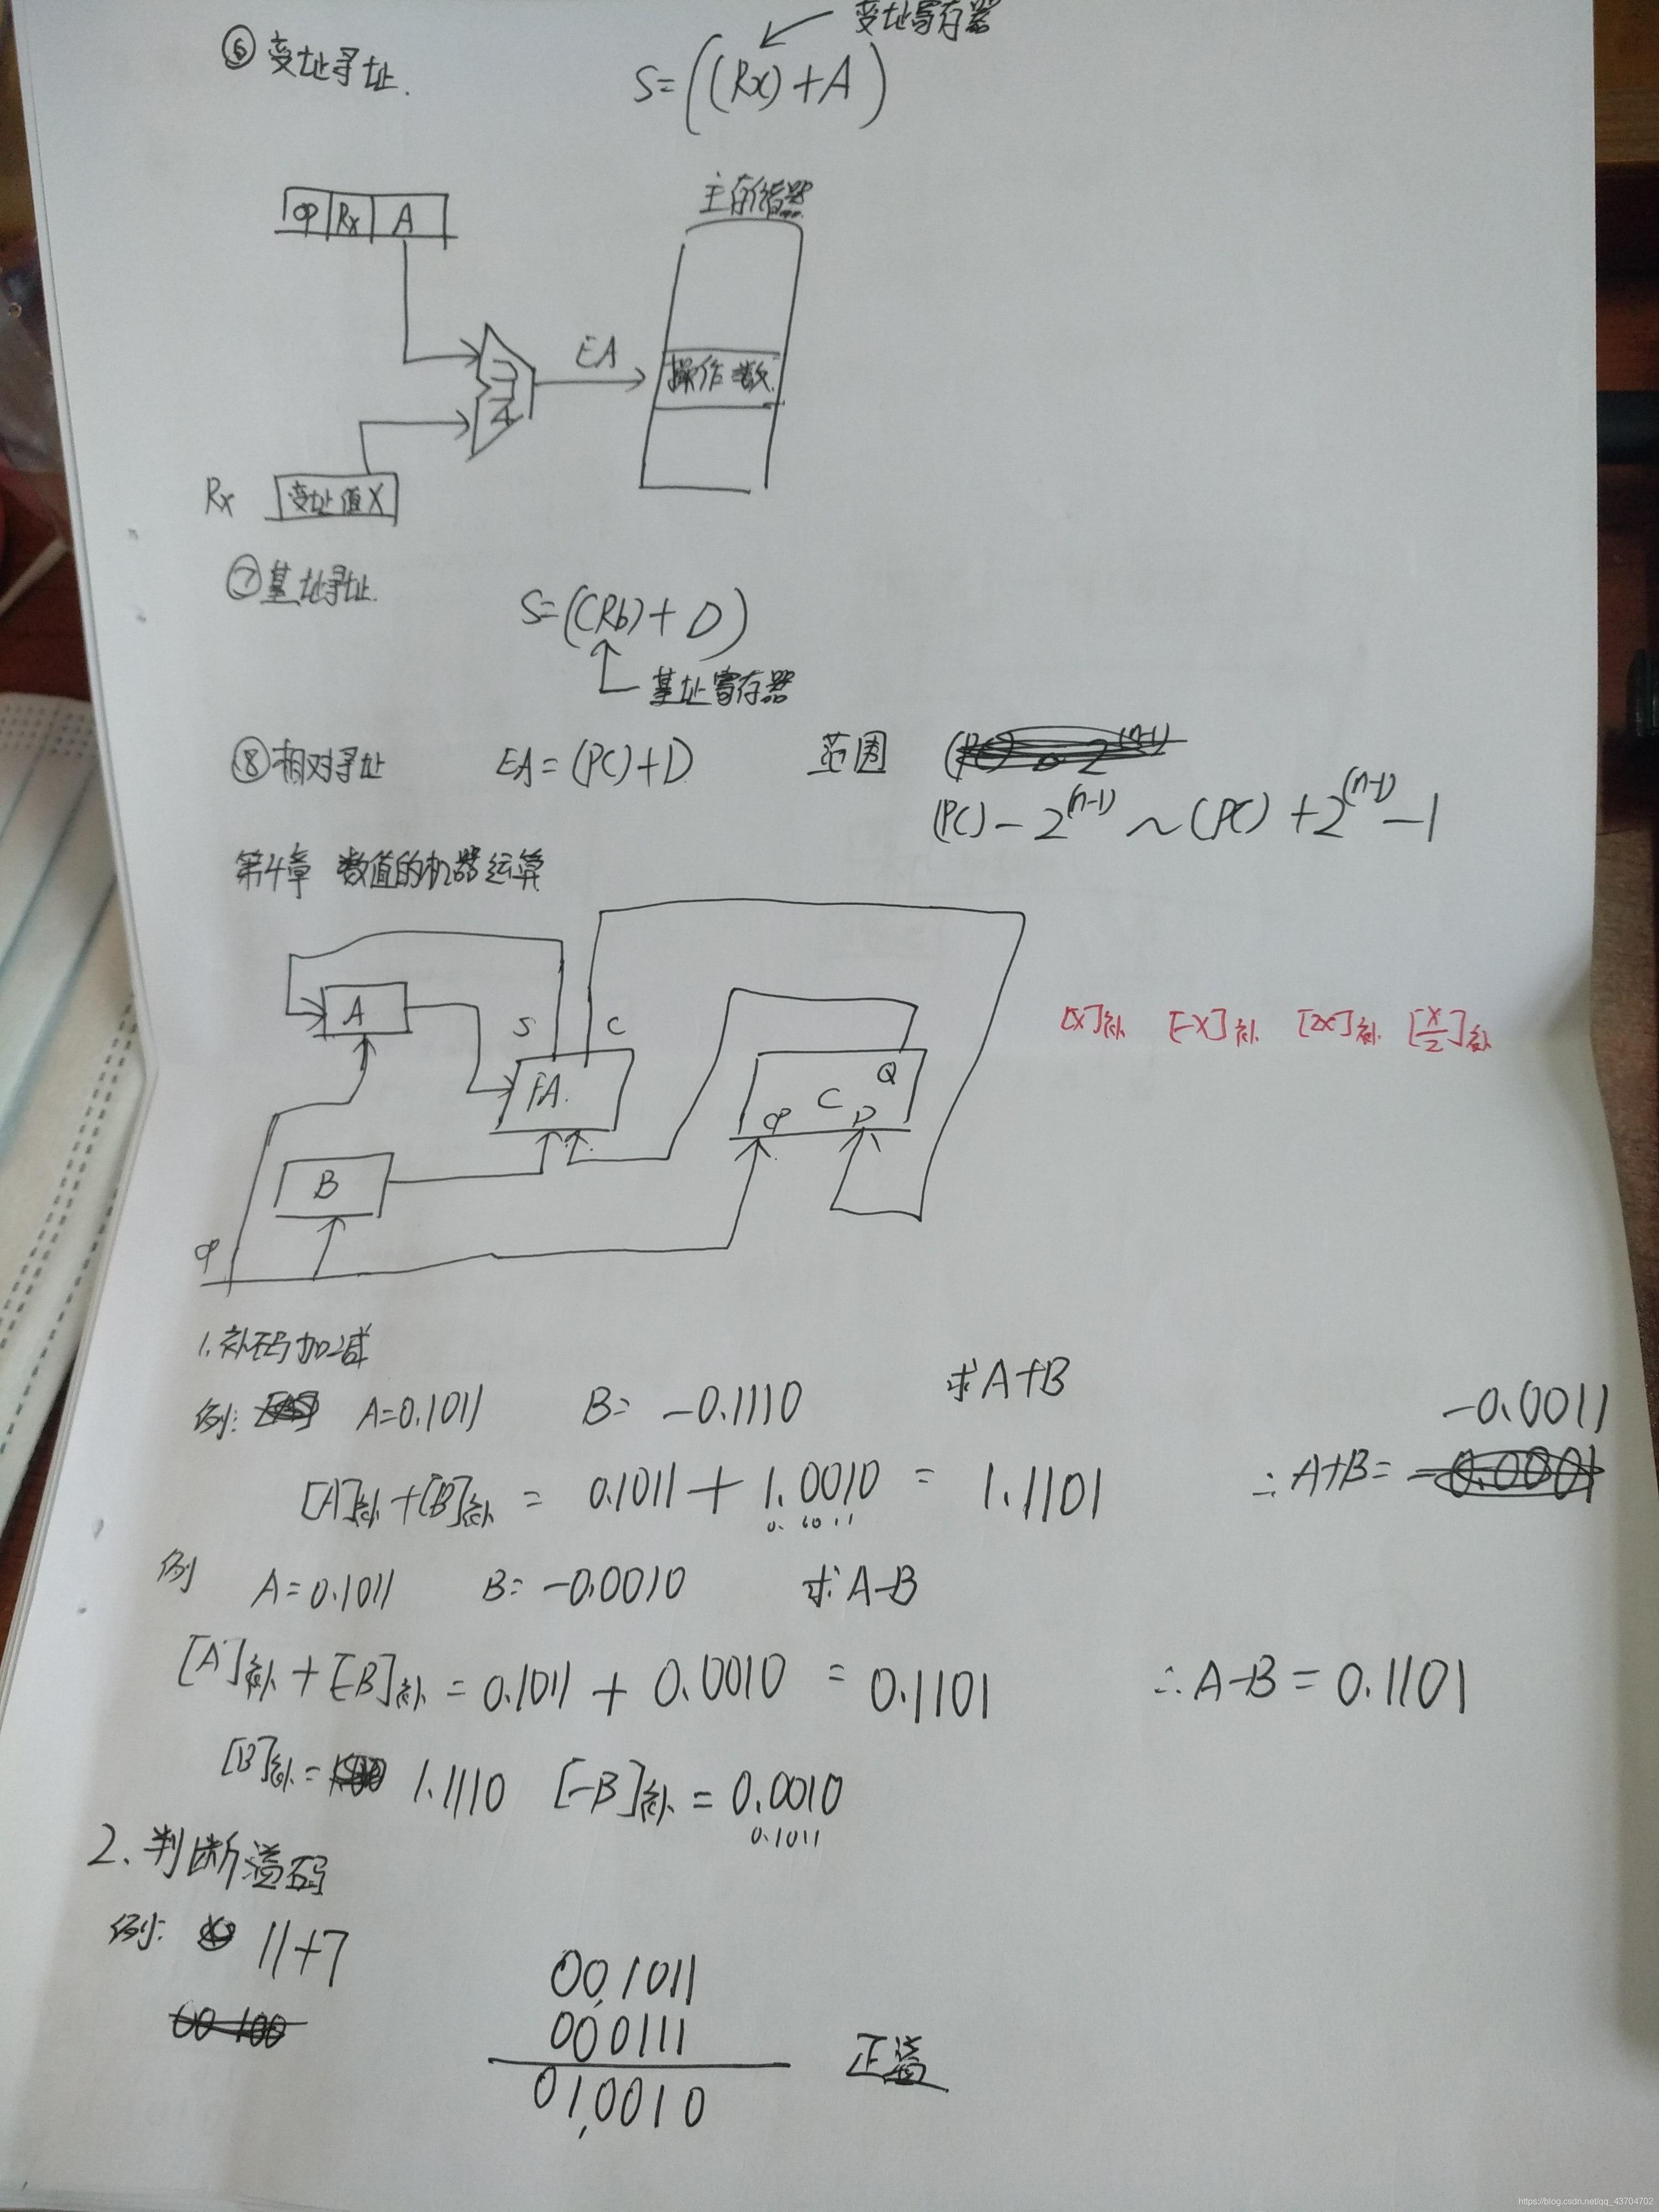 变址寄存器
⑥ 变址寻址. S=((Rx)+A)
主存储器
OP Rx A
EA
操作数
Rx 变址值X
⑦基址寻址. S=((Rb)+D)
基址寄存器
⑧相对寻址 EA=(PC)+D 范围
(PC)-2^(n-1) ~ (PC)+2^(n-1)-1
第4章 数值的机器运算
A S C
[X]补 [-X]补 [2X]补 [X/2]补
FA. Q
C
CP D
B
CP
1.补码加减
例: A=0.1011 B= -0.1110 求A+B
-0.0011
[A]补+[B]补 = 0.1011 + 1.0010 = 1.1101 ∴A+B=
0.1011
例 A=0.1011 B= -0.0010 求A-B
[A]补+[-B]补=0.1011 + 0.0010 = 0.1101 ∴A-B=0.1101
[B]补= 1.1110 [-B]补=0.0010
0.1011
2.判断溢码
例: 11+7
00,1011
00 0111 正溢
01,0010
https://blog.csdn.net/qq_43704702